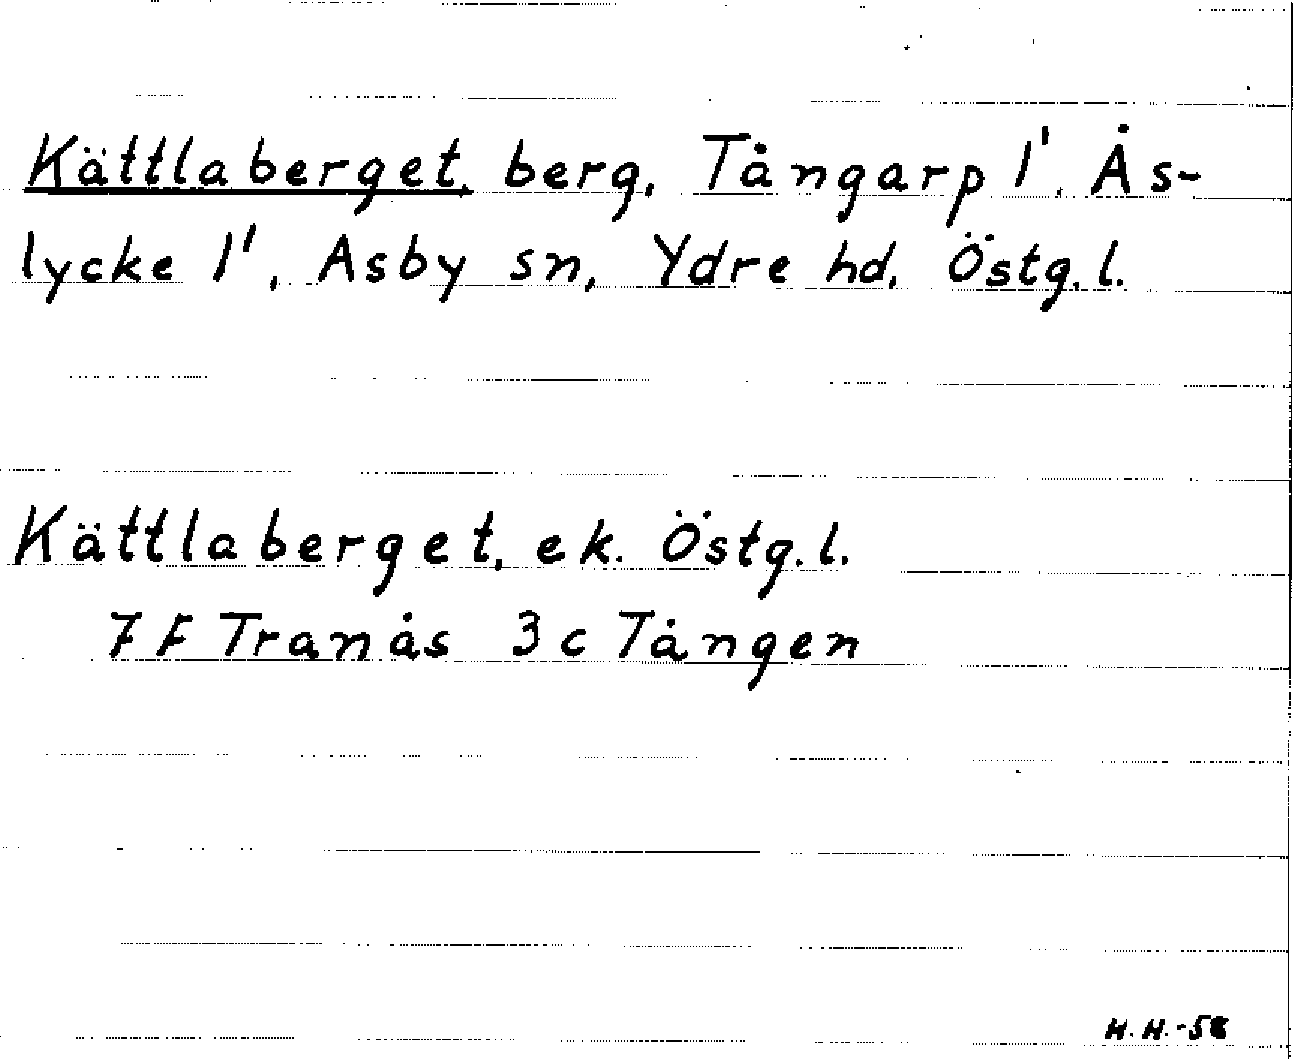 Kättlaberget, berg, Tångarp 1', Ås-
lycke 1', Asby sn, Ydre hd, Östg.l.
Kättlaberget, ek. Östg.l.
7 F Tranås 3 c Tången
H.H.-58